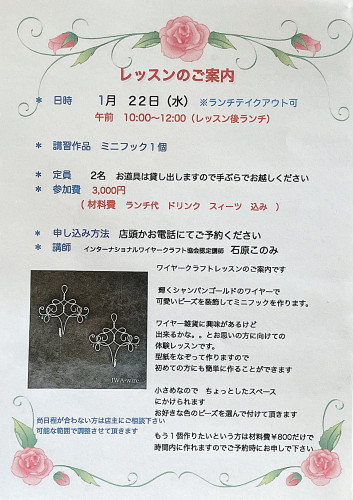 レッスンのご案内
* 日時 1月 22日(水) ※ランチテイクアウト可
午前 10:00~12:00(レッスン後ランチ)
* 講習作品 ミニフック1個
* 定員 2名 お道具は貸し出しますので手ぶらでお越しください
* 参加費 3,000円
(材料費 ランチ代 ドリンク スィーツ 込み )
* 申し込み方法 店頭かお電話にてご予約ください
* 講師 インターナショナルワイヤークラフト協会認定講師 石原このみ
ワイヤークラフトレッスンのご案内です
輝くシャンパンゴールドのワイヤーで
可愛いビーズを装飾してミニフックを作ります。
ワイヤー雑貨に興味があるけど
出来るかな。。とお思いの方に向けての
体験レッスンです。
型紙をなぞって作りますので
初めての方にも簡単に作ることができます
小さめなので ちょっとしたスペース
にかけられます
お好きな色のビーズを選んで付けて頂きます
もう1個作りたいという方は材料費¥800だけで
時間内に作れますのでご予約時にお申し下さい
IWA-wire
尚日程が合わない方は店主にご相談下さい
可能な範囲で調整させて頂きます